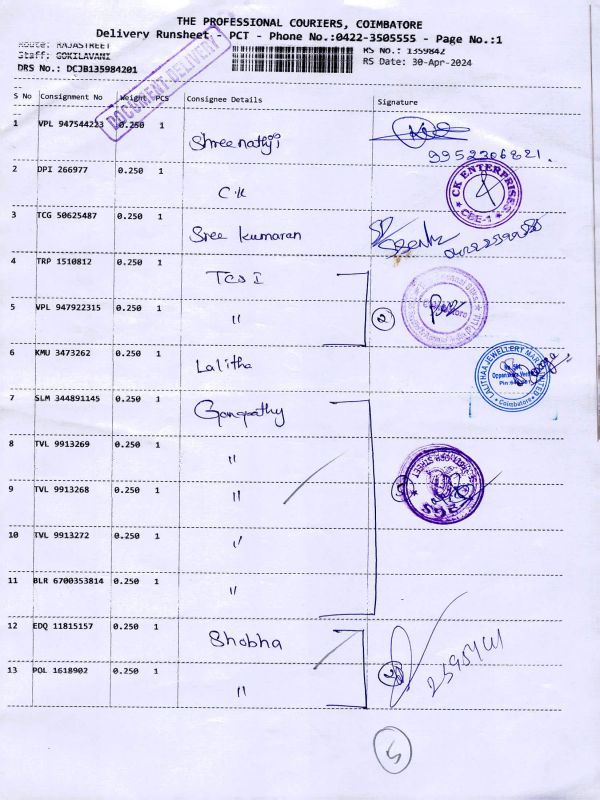 THE PROFESSIONAL COURIERS, COIMBATORE
Delivery Runsheet - PCT - Phone No.:0422-3505555 - Page No.:1
Route: RAJASTREET
Staff: GOKILAVANI
DRS No.: DCJB135984201
RS No.: 1359842
RS Date: 30-Apr-2024
DOCUMENT DELIVERY
S No Consignment No Weight PCS Consignee Details Signature
1 VPL 947544223 0.250 1 Shreenathji
9952206821.
2 DPI 266977 0.250 1 C.K
CK ENTERPRISES
CBE-1
3 TCG 50625487 0.250 1 Sree kumaran
4 TRP 1510812 0.250 1 TCS I
5 VPL 947922315 0.250 1 "
2
6 KMU 3473262 0.250 1 Lalitha
LALITHAA JEWELLERY MART
Coimbatore
7 SLM 344891145 0.250 1 Ganapathy
8 TVL 9913269 0.250 1 "
9 TVL 9913268 0.250 1 "
5
SGS
10 TVL 9913272 0.250 1 "
11 BLR 6700353814 0.250 1 "
12 EDQ 11815157 0.250 1 Shobha
13 POL 1618902 0.250 1 "
2
5